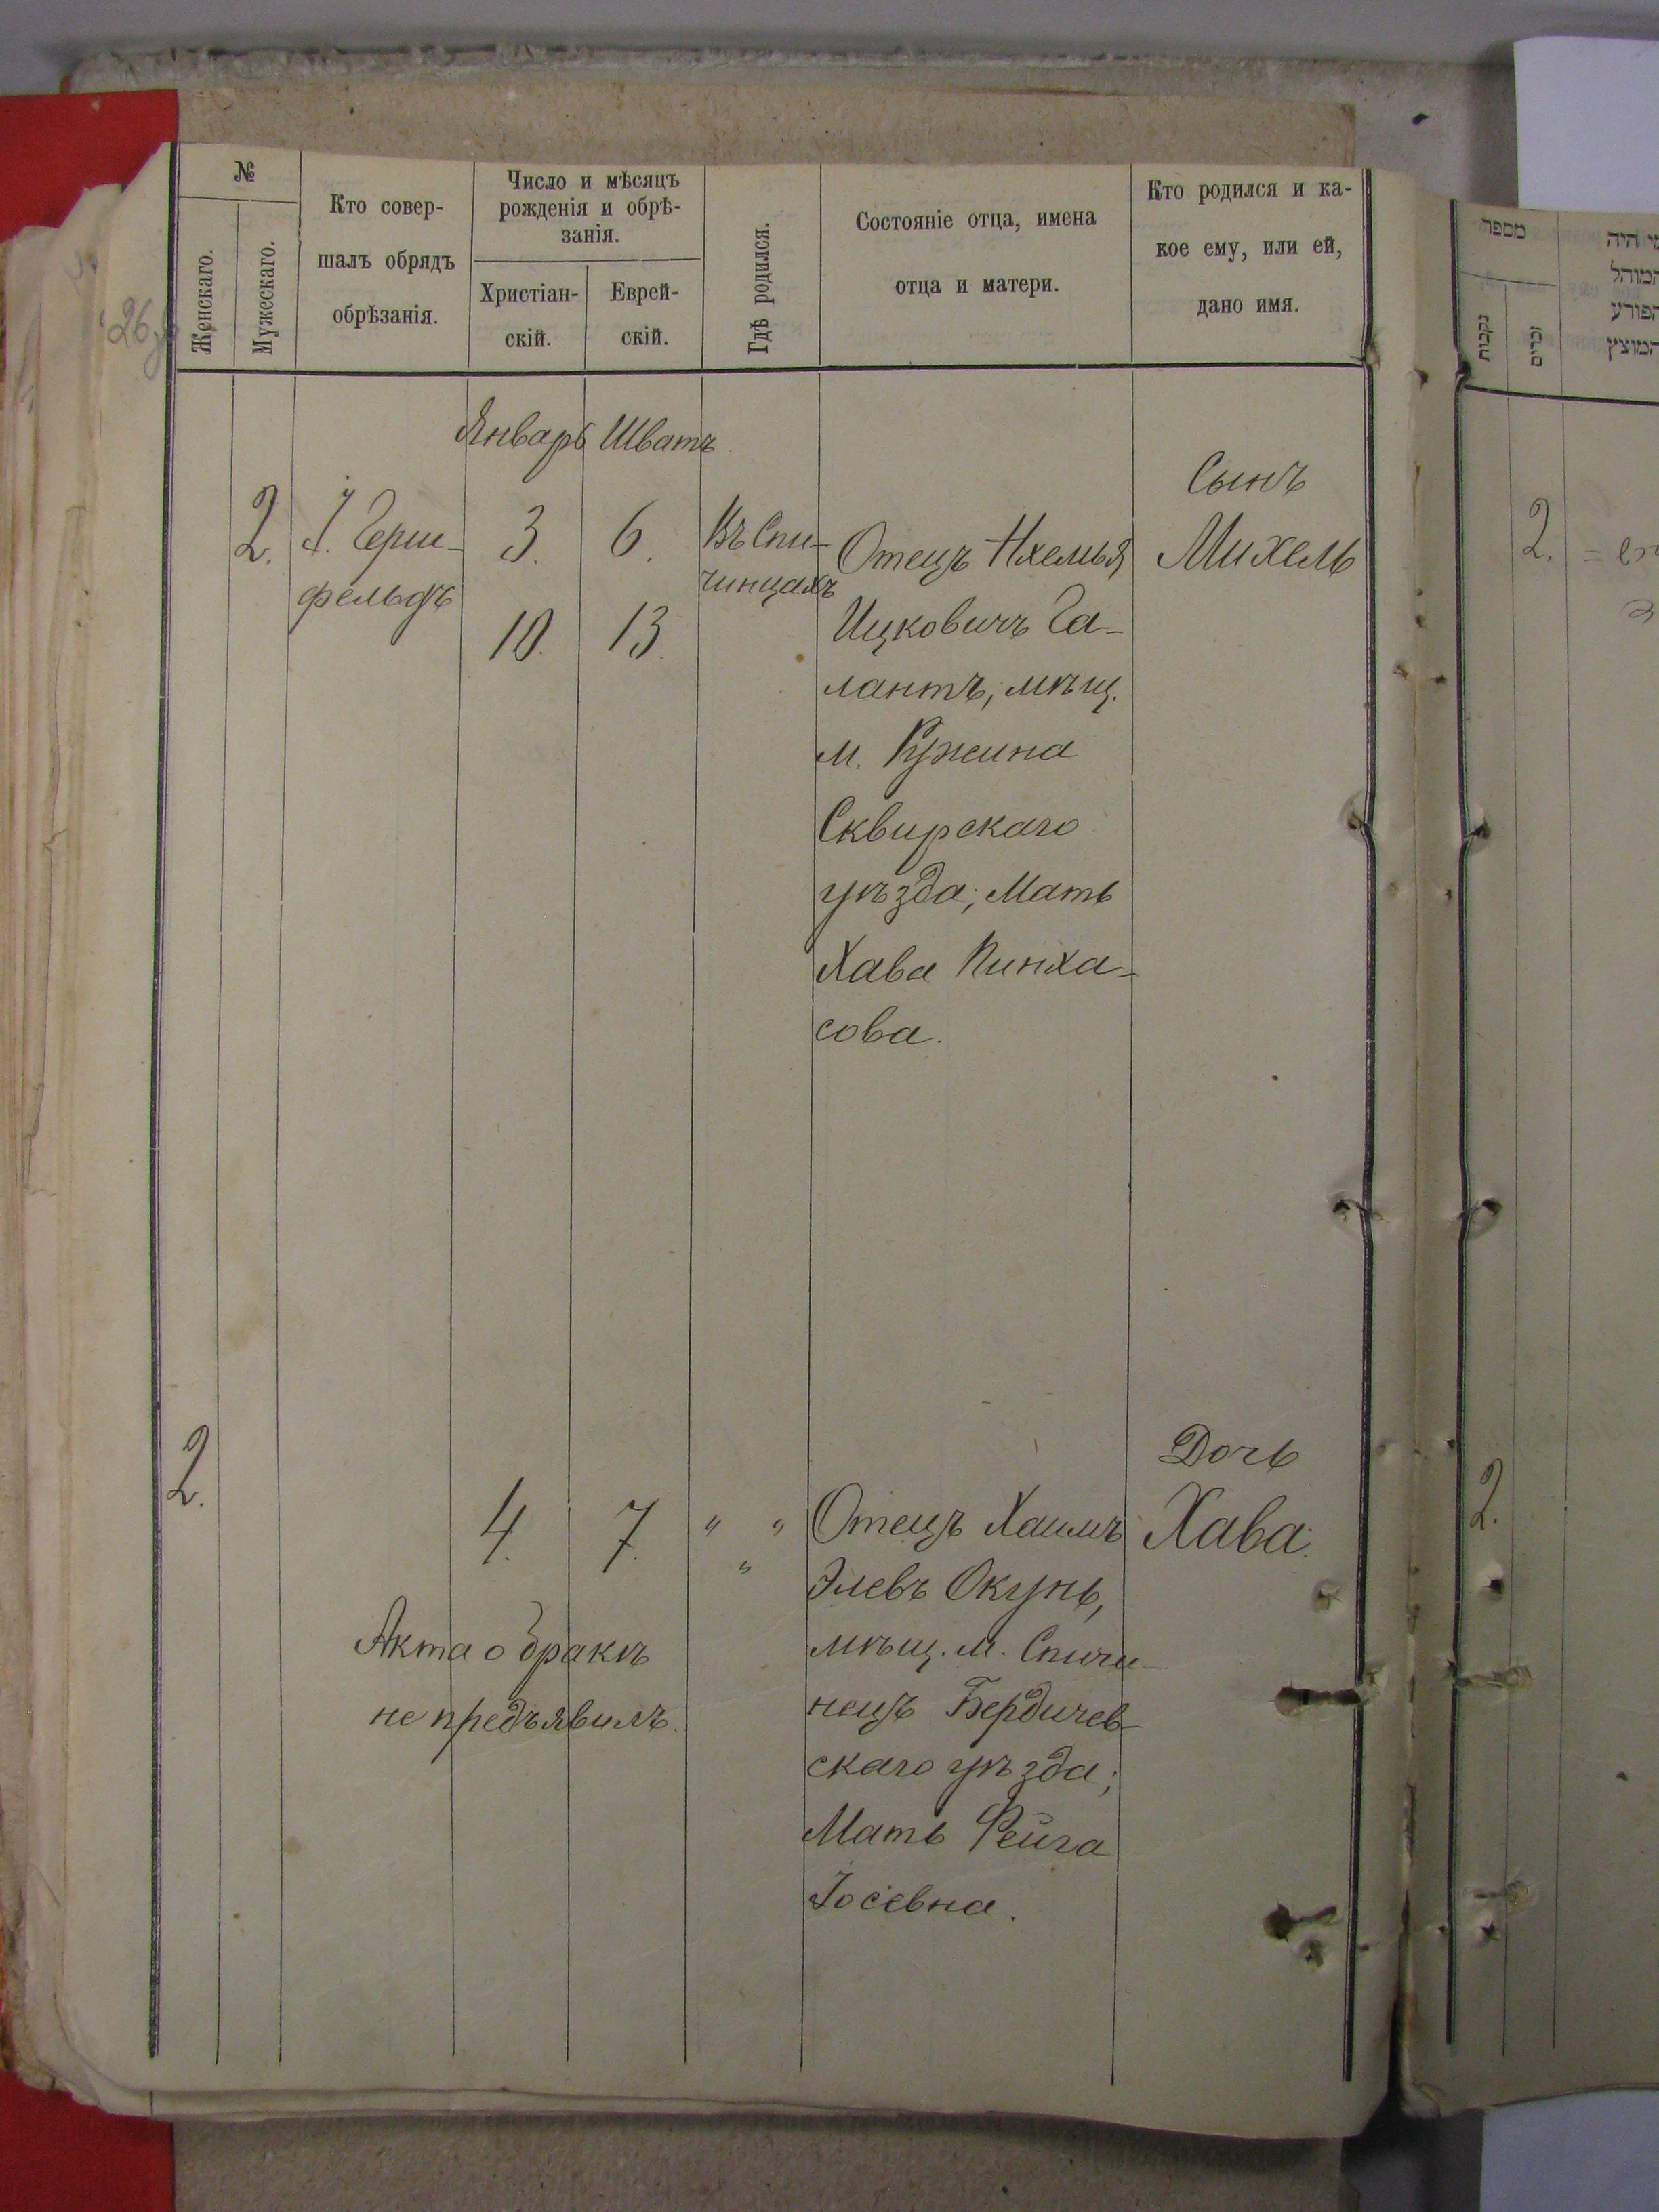 №
Женскаго.
Мужескаго.
Кто совер-
шалъ обрядъ
обрѣзанія.
Число и мѣсяцъ
рожденія и обрѣ-
занія.
Христіан-
скій.
Еврей-
скій.
Гдѣ родился.
Состояніе отца, имена
отца и матери.
Кто родился и ка-
кое ему, или ей,
дано имя.
Январь Шватъ
2. Герш-
фельдъ
3. 6.
10. 13.
Въ Спи-
чинцахъ
Отецъ Нхемья
Ицковичъ Га-
лантъ, мѣщ.
м. Ружина
Сквирскаго
уѣзда; Мать
Хава Пинха-
сова.
Сынъ
Михель
2.
4. 7. " "
"
Актa о бракѣ
не предъявилъ.
Отецъ Хаимъ
Элевъ Окунь,
мѣщ. м. Спичи-
нецъ Бердичев-
скаго уѣзда;
Мать Фейга
Іосевна.
Дочь
Хава.
מספר
נקבות
זכרים
מי היה
המוהל
הפורע
המוצץ
2.
2.